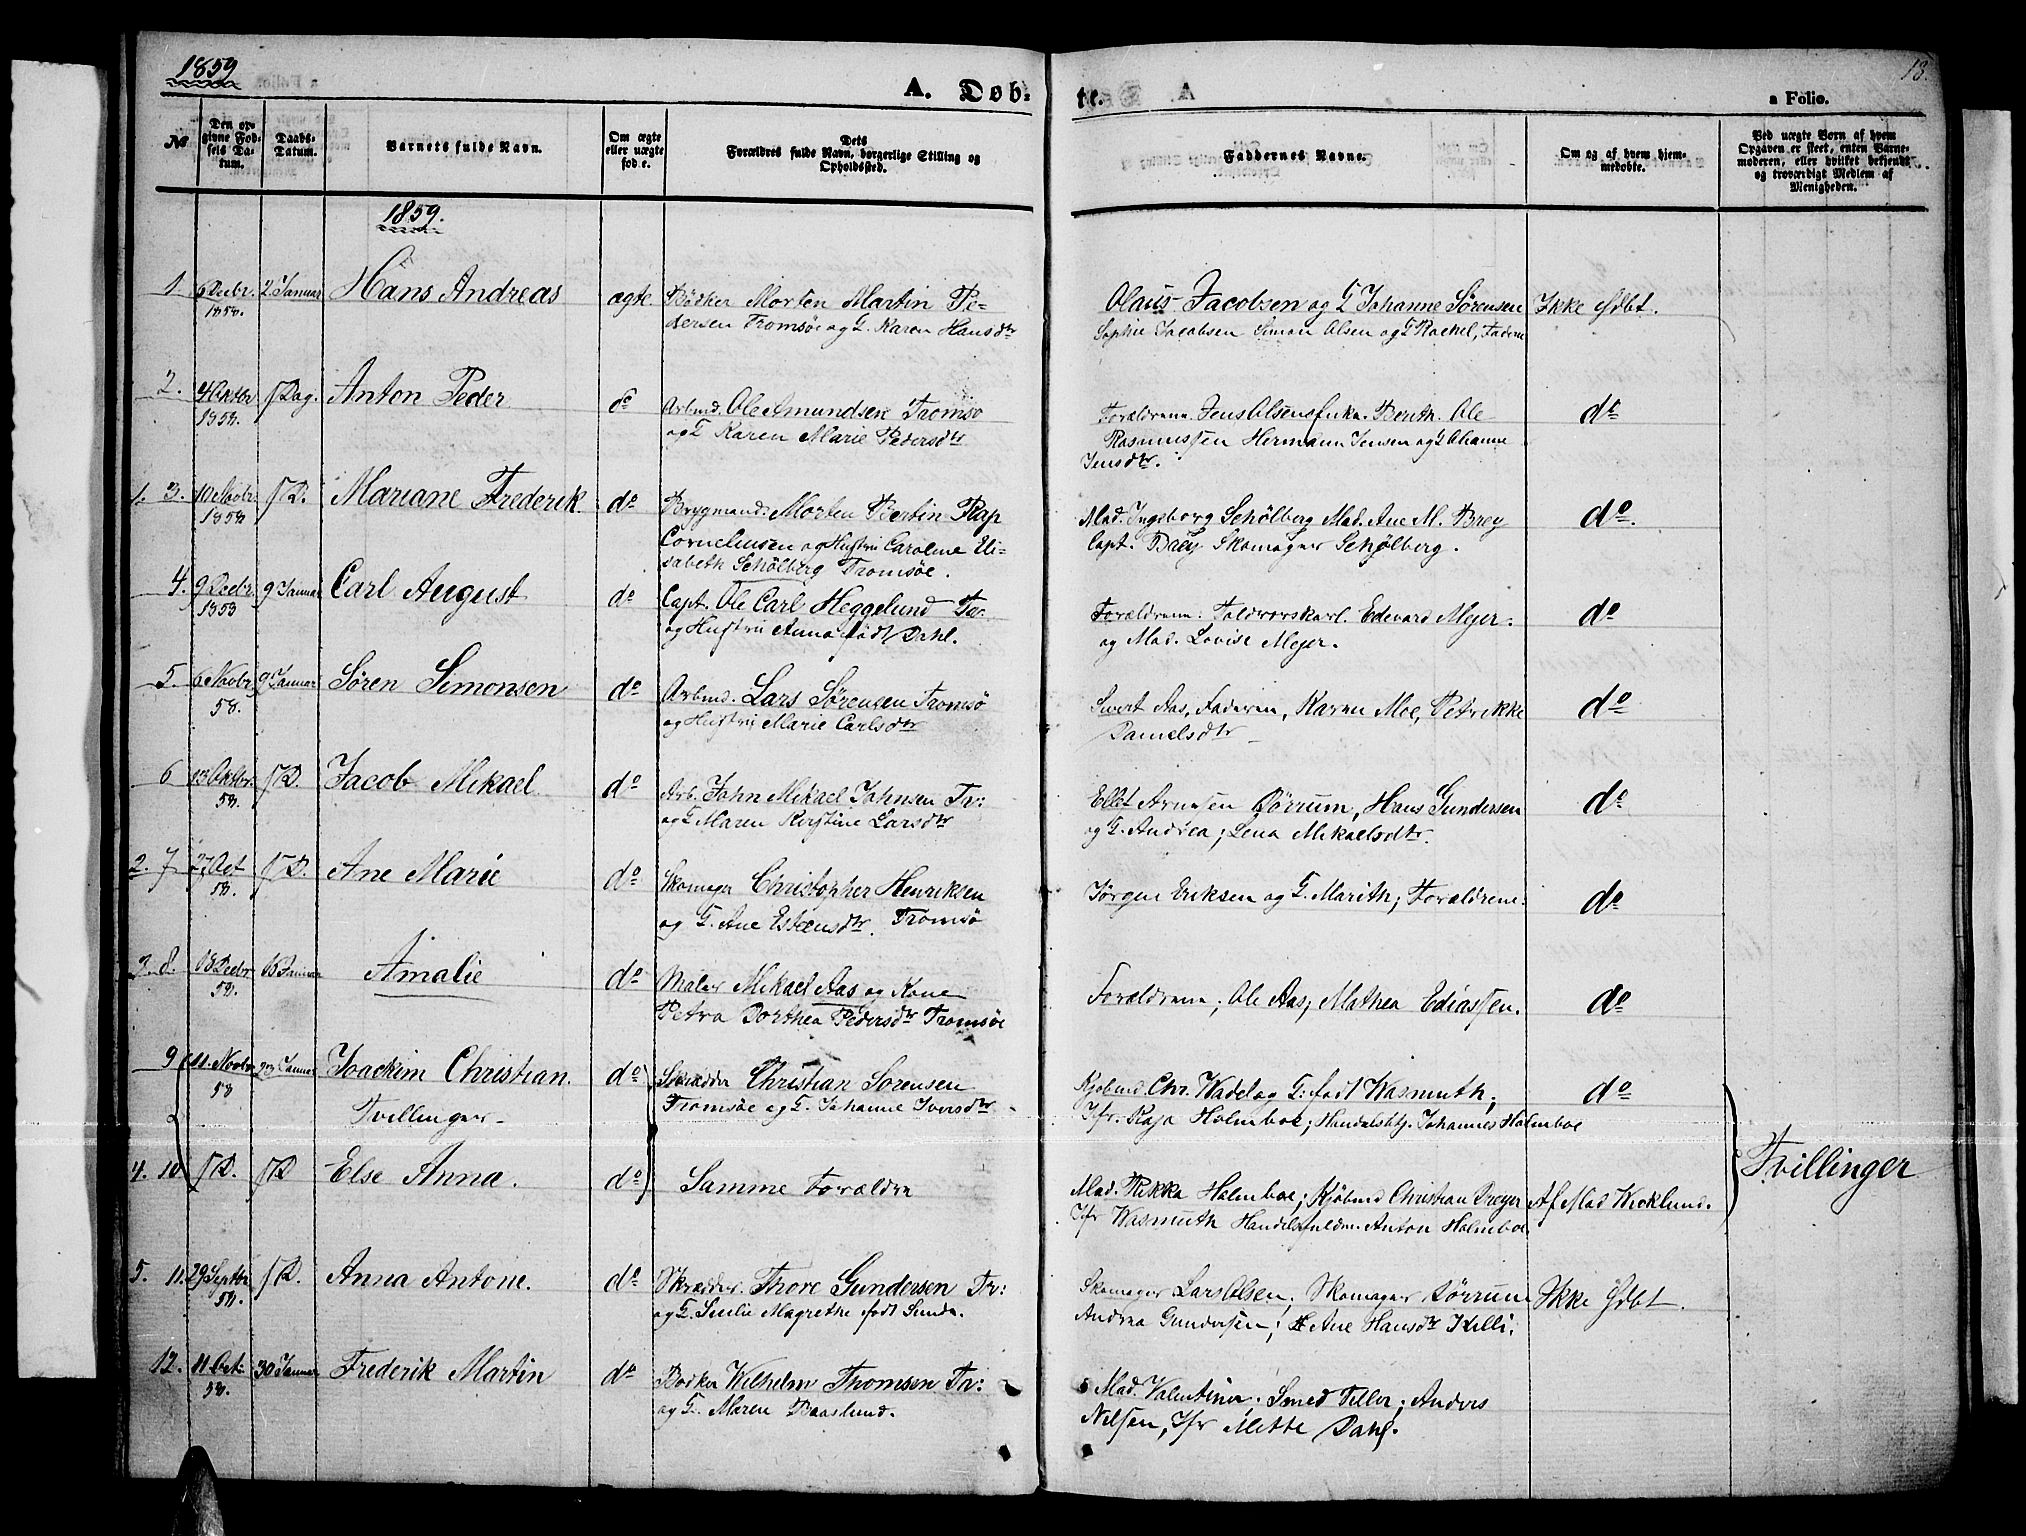 1859
A. Døb-
te.
13.
a Folio.
No
Den opgivne Fødsels Datum.
Daabs-Datum.
Barnets fulde Navn.
Om ægte eller uægte fød.e.
Dets Forældres fulde Navn, borgerlige Stilling og Opholdssted.
Faddernes Navne.
Om og af hvem hjemmedøbte.
Ved uægte Børn af hvem Opgaven er skeet, enten Barnemoderen, eller hvilket bekjendt og troværdigt Medlem af Menigheden.
1859.
1. 6 Decbr. 1858. 2 Januar Hans Andreas ægte Bödker Morten Martin Pe-
dersen Tromsöe og G. Karen Hansdtr
Olaus Jacobsen og G Johanne Sørensen Ikke Hdbt.
Sophie Jacobsen Simon Olsen og G Rachel, Fadern
2. 4 Oktbr 1858. s. Dag. Anton Peder do Arbmd. Ole Amundsen Tromsö
og G Karen Marie Pedersdtr
Forældrene Jens Olsens Enke. Berith. Ole do
Rasmussen Hermann Jensen og G Ohanne
Jensdtr.
1. 3. 10 Novbr. 1858 s. D. Mariane Frederik. do Brygmand: Morten Bertin Rap
Corneliusen og Hustru Caroline Eli-
sabeth Schölberg Tromsöe.
Mad. Ingeborg Schölberg Mad. Ane M. Brey do.
Capt. Brey Skomager Schjölberg.
4. 9 Decbr 1858 9 Januar Carl August do Capt. Ole Carl Heggelund Tr.
og Hustru Anna födt Dahl.
Forældrene: Toldrorskarl. Edevard Mejer. do
og Mad. Lovise Mejer.
5. 6 Novbr 58. 9 Januar Sören Simonsen do Arbmd. Lars Sörensen Tromsö
og Hustru Marie Carlsdtr
Sivert Aas, Faderen, Karen Moe, Petrikke do
Danielsdtr
6 13 Oktbr. 58. s. D. Jacob Mikael do Arb. John Mikael Johnsen Tr:
og G Maren Kirstine Larsdtr
Ellet Arntsen Dørrum, Hans Gundersen do
og G. Andrea; Lena Mikaelsdtr.
2. 7. 27 Oct 58. s. D. Ane Marie do Skomager Christopher Henriksen
og G. Ane Estensdtr. Tromsö
Jörgen Eriksen og G. Marith; Forældrene. do
3. 8. 18 Decbr 58. 15 Januar Amalie do Maler Mikael Aas og Kone
Petra Dorthea Pedersdtr Tromsöe
Forældrene; Ole Aas; Mathea Ediassen. do
9 11. Novbr 58 23 Januar Joackim Christian. do Skrædder Christian Sorensen
Tromsöe og G. Johanne Iversdtr
Tvillinger
Kjøbmd. Chr. Wadel og G: født Wasmuth; do
Jfr. Kaja Holmboe; Handelsbtj. Johannes Holmboe
4. 10 s. D. s. D Else Anna. do Samme Forældre
Mad. Rikka Holmboe; Kjöbmd Christian Dreyer Af Mad Wicklund.
Jfr Wasmuth Handelsfuldm. Anton Holmboe
Tvillinger
5. 11. 29 Septbr 58. s. D. Anna Antone. do Skrædder. Thore Gundersen Tr:
og G. Senlie Magrethe født Sunde.
Skomager Lars Olsen; Skomager Dørrum Ikke Hdbt.
Andrea Gundersen; Ane Hansdtr Killi.
12. 11 Oct. 58. 30 Januar Frederik Martin do Bödker Wilhelm Thomsen Tr:
og G. Maren Baaslund.
Mad. Valentina. Smed Teller; Anders
Nilsen, Jfr Mette Dahl.